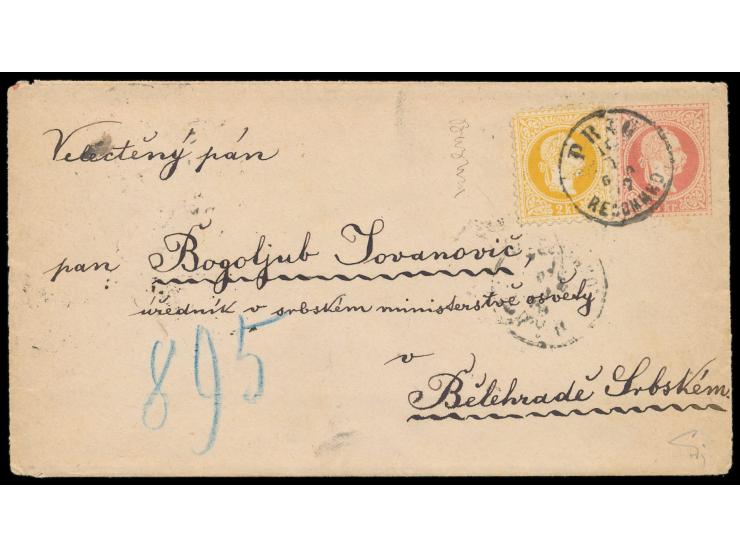 Velectěný pán
pan Bogoljub Jovanovič,
úředník v srbském ministerstvě osvěty
v
Bělehradě Srbském.
895
2 KR
PRAG
RECOMMAND